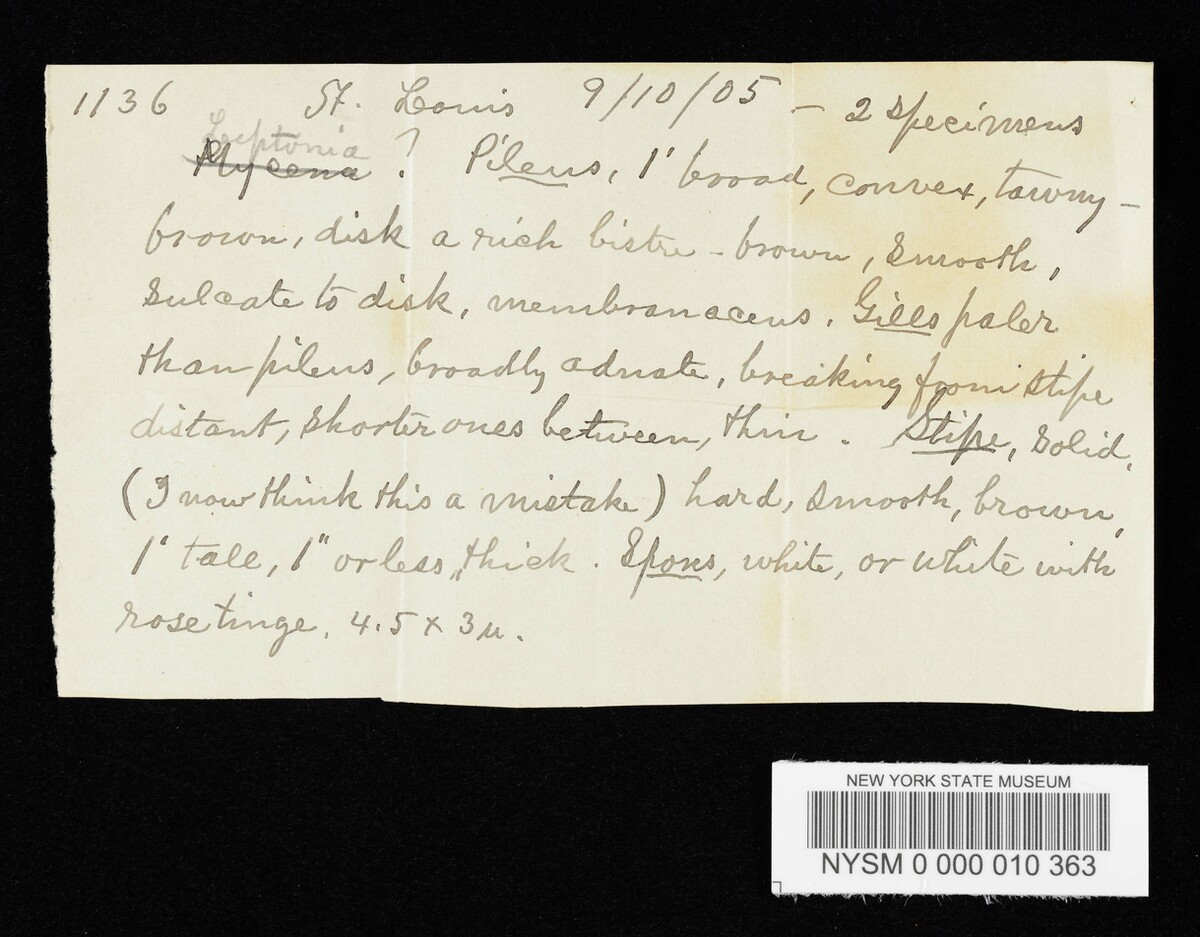 1136 St. Louis 9/10/05 - 2 specimens
Leptonia
Mycena ? Pileus, 1' broad, convex, tawny-
brown, disk a rich bistre-brown, smooth,
sulcate to disk, membranaceus. Gills paler
than pileus, broadly adnate, breaking from stipe
distant, shorter ones between, thin. Stipe, solid,
(I now think this a mistake) hard, smooth, brown,
1' tall, 1" or less, thick. Spores, white, or white with
rose tinge. 4.5 x 3 µ.
NEW YORK STATE MUSEUM
NYSM 0 000 010 363